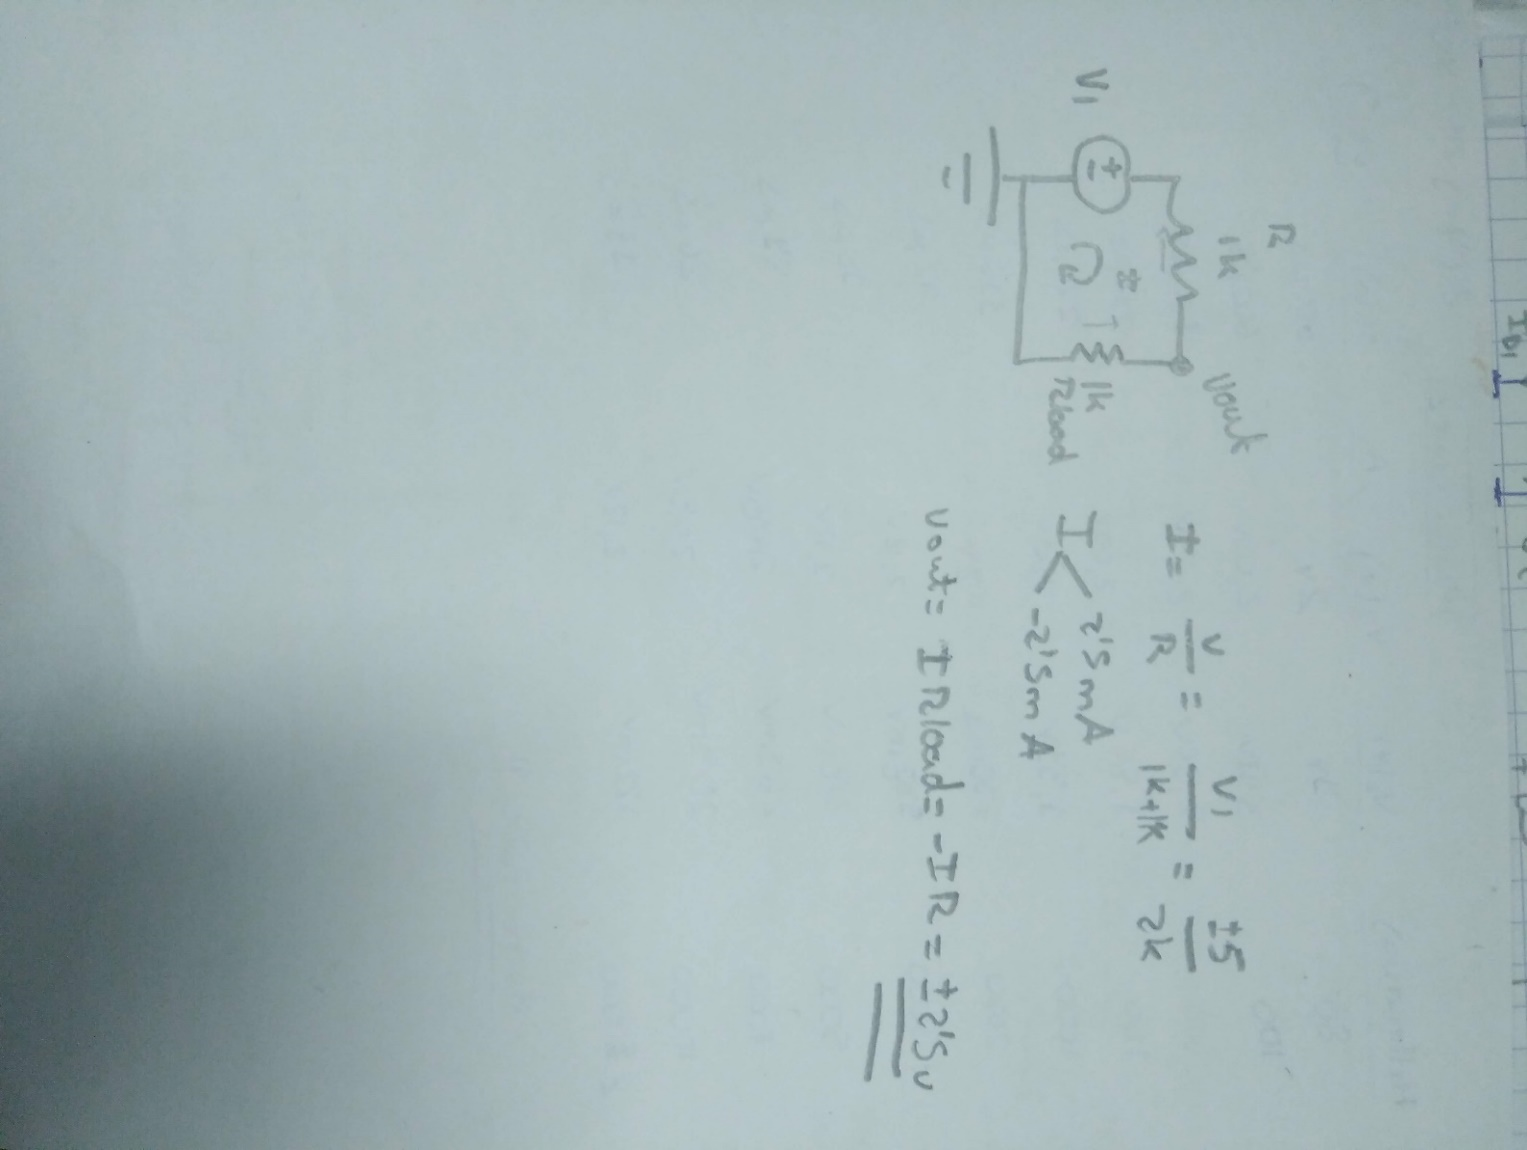 R
1k
Vout
V1
+
-
I
1k
Rload
I = V/R = V1/1k+1k = ±5/2k
I < 2'5mA
-2'5mA
Vout = I Rload = -IR = ±2'5v
ID1